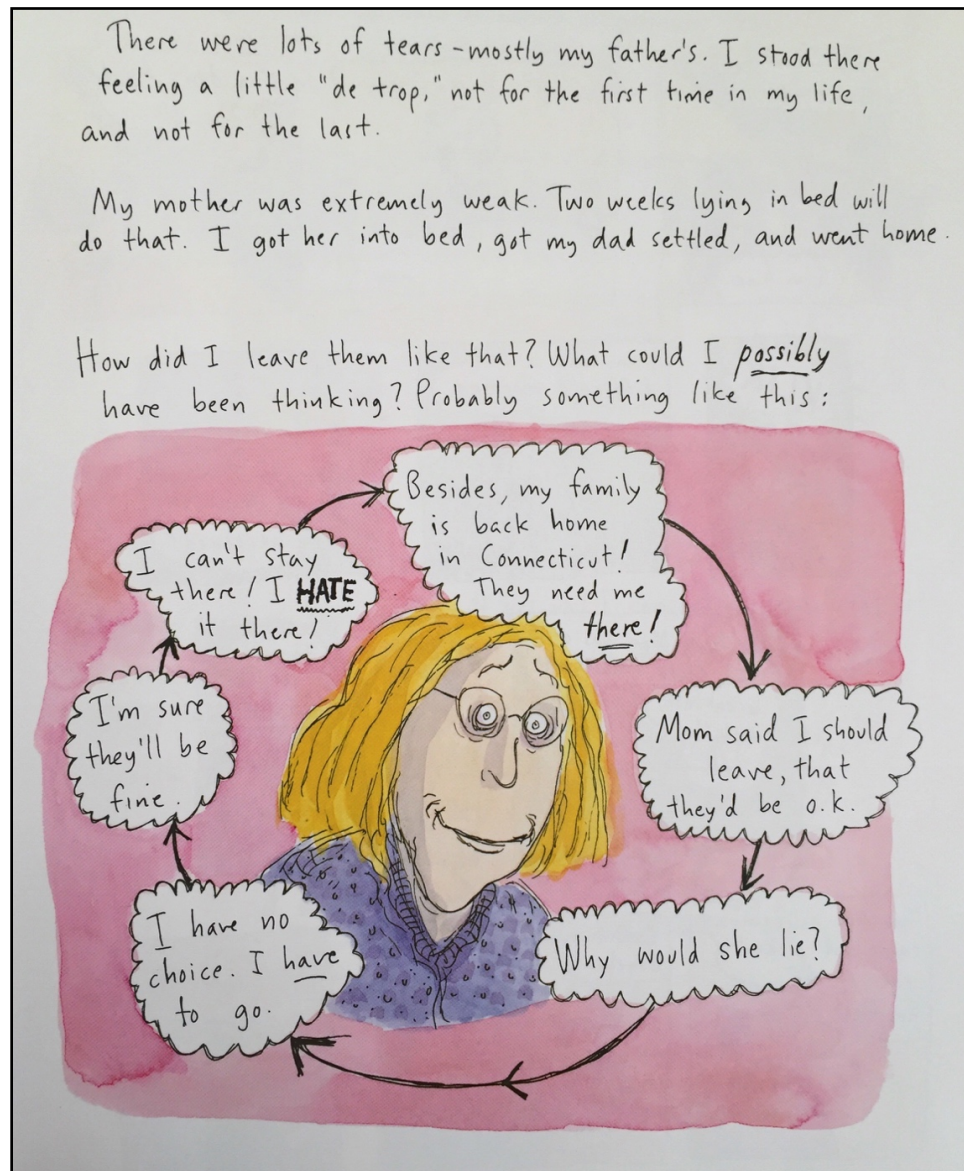 There were lots of tears - mostly my father's. I stood there
feeling a little "de trop," not for the first time in my life,
and not for the last.
My mother was extremely weak. Two weeks lying in bed will
do that. I got her into bed, got my dad settled, and went home.
How did I leave them like that? What could I possibly
have been thinking? Probably something like this:
Besides, my family
is back home
in Connecticut!
They need me
there!
Mom said I should
leave, that
they'd be o.k.
Why would she lie?
I have no
choice. I have
to go.
I'm sure
they'll be
fine.
I can't stay
there! I HATE
it there!